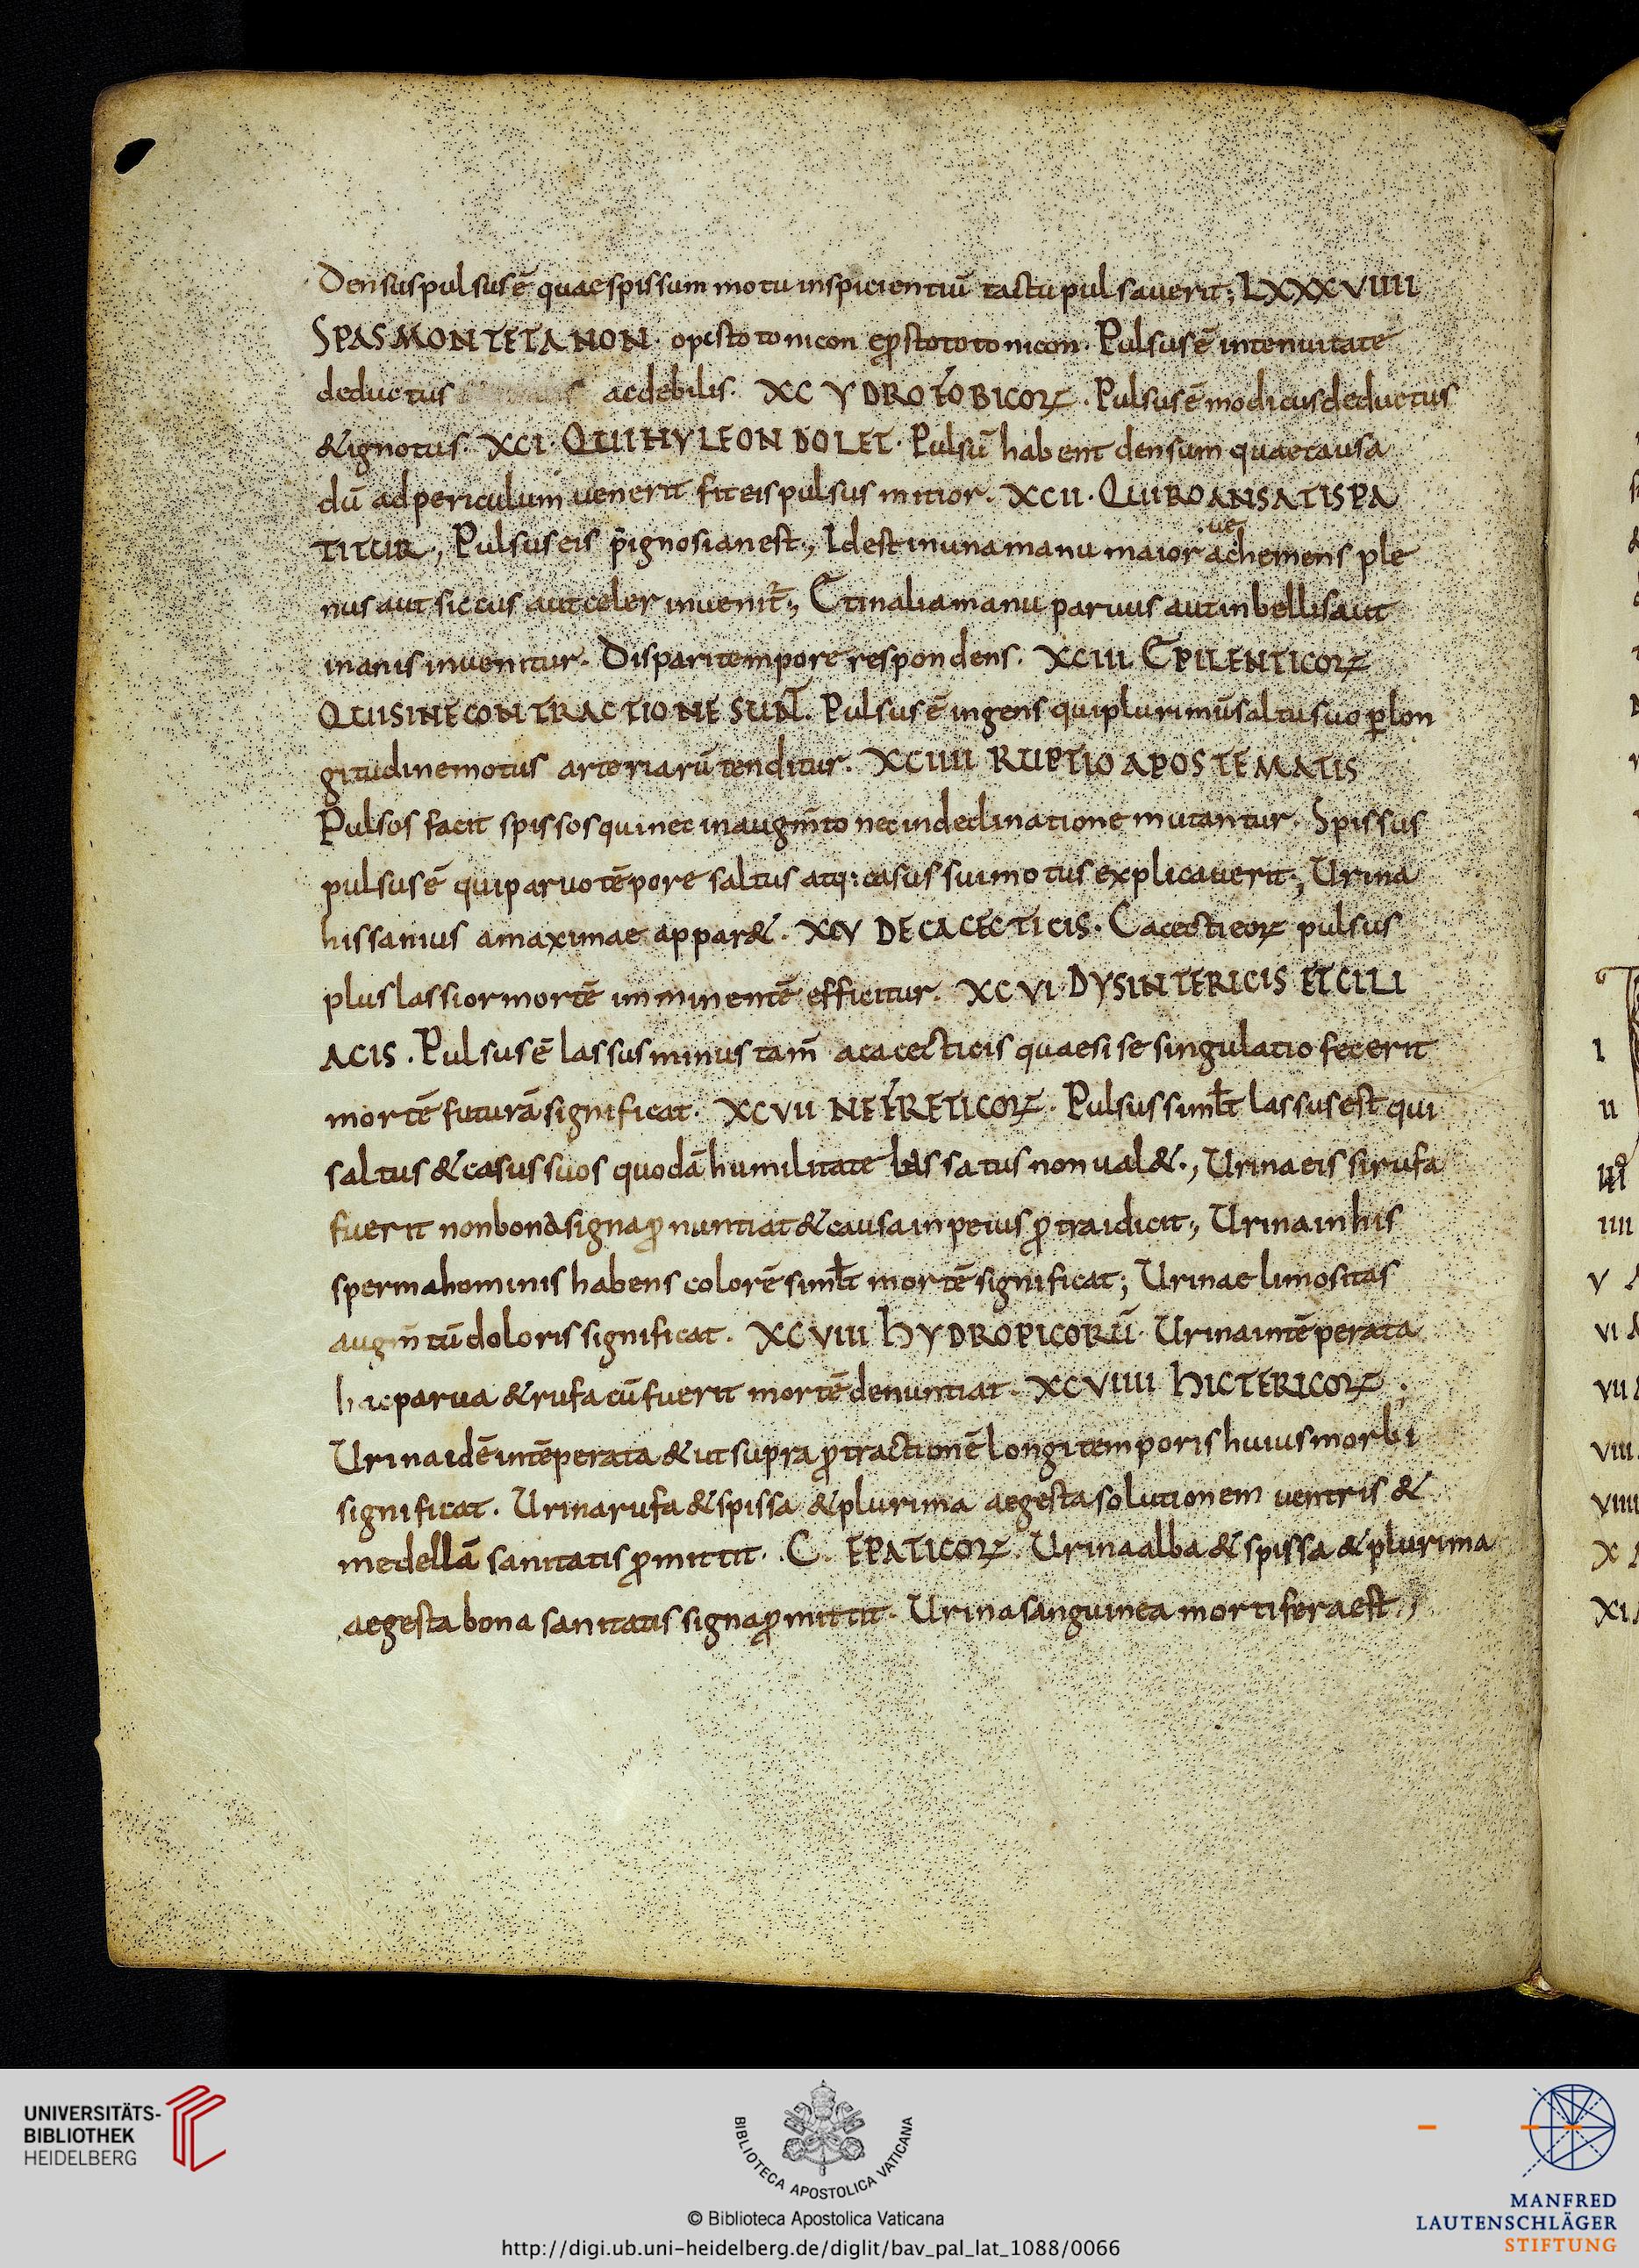 Densus pulsus ē quae spissum motu inspicientiū tactu pulsauerit; LXXXVIIII
SPASMON TETANON· opistotonicon ep̄stototonicon· Pulsus ē in tenuitate
deductus ac debilis· XC YDROFOBICOR̄· Pulsus ē modicus deductus
& ignotus· XCI· QUI HYLEON DOLET· Pulsū habent densum quae causa
dū ad periculum uenerit fit eis pulsus mitior· XCII· QUI ROANSATIS PA
TITUR·, Pulsus eis p̄ignosian est·, Id est in una manu maior ac uehemens ple
nus aut siccus aut celer inuenit̄·, Et in alia manu paruus aut inbellis aut
inanis inuenitur· Dispari tempore respondens· XCIII EPILENTICOR̄
QUI SINE CONTRACTIONE SUNT̄· Pulsus ē ingens qui plurimū saltu suo ꝑ lon
gitudine motus arteriarū tenditur· XCIIII RUPTIO APOSTEMATIS
Pulsos facit spissos qui nec in augm̄to nec in declinatione mutantur· Spissus
pulsus ē qui paruo tēpore saltus atq: casus sui motus explicauerit·, Urina
his sanius a maximae appar&· XCV DE CACECTICIS· Cacecticor̄ pulsus
plus lassior mortē imminentē efficitur· XCVI DYSINTERICIS ET CILI
ACIS· Pulsus ē lassus minus tam̄ a cacecticis quae si se singulatio fecerit
mortē futurā significat· XCVII NEFRETICOR̄· Pulsus simlt̄ lassus est qui
saltus & casus suos quodā humilitate lassatus non ual&·, Urina eis si rufa
fuerit non bona signa ꝓnuntiat & causa in peius ꝓtraidicit·, Urina in his
sperma hominis habens colorē simlt̄ mortē significat; Urinae limositas
augm̄tū doloris significat· XCVIII HYDROPICORŪ· Urina intēperata
hac parua & rufa cū fuerit mortē denuntiat· XCVIIII HICTERICOR̄·,
Urina idē intēperata & ut supra ꝓtractionē longi temporis huius morbi
significat· Urina rufa & spissa & plurima aegesta solutionem uentris &
medellā sanitatis ꝓmittit· C· EPATICOR̄· Urina alba & spissa & plurima
aegesta bona sanitatis signa ꝓmittit· Urina sanguinea mortifera est·,
I
II
IIII
V
VI
VII
VIII
VIIII
X
XI
UNIVERSITÄTS-
BIBLIOTHEK
HEIDELBERG
BIBLIOTECA APOSTOLICA VATICANA
© Biblioteca Apostolica Vaticana
http://digi.ub.uni-heidelberg.de/diglit/bav_pal_lat_1088/0066
MANFRED
LAUTENSCHLÄGER
STIFTUNG